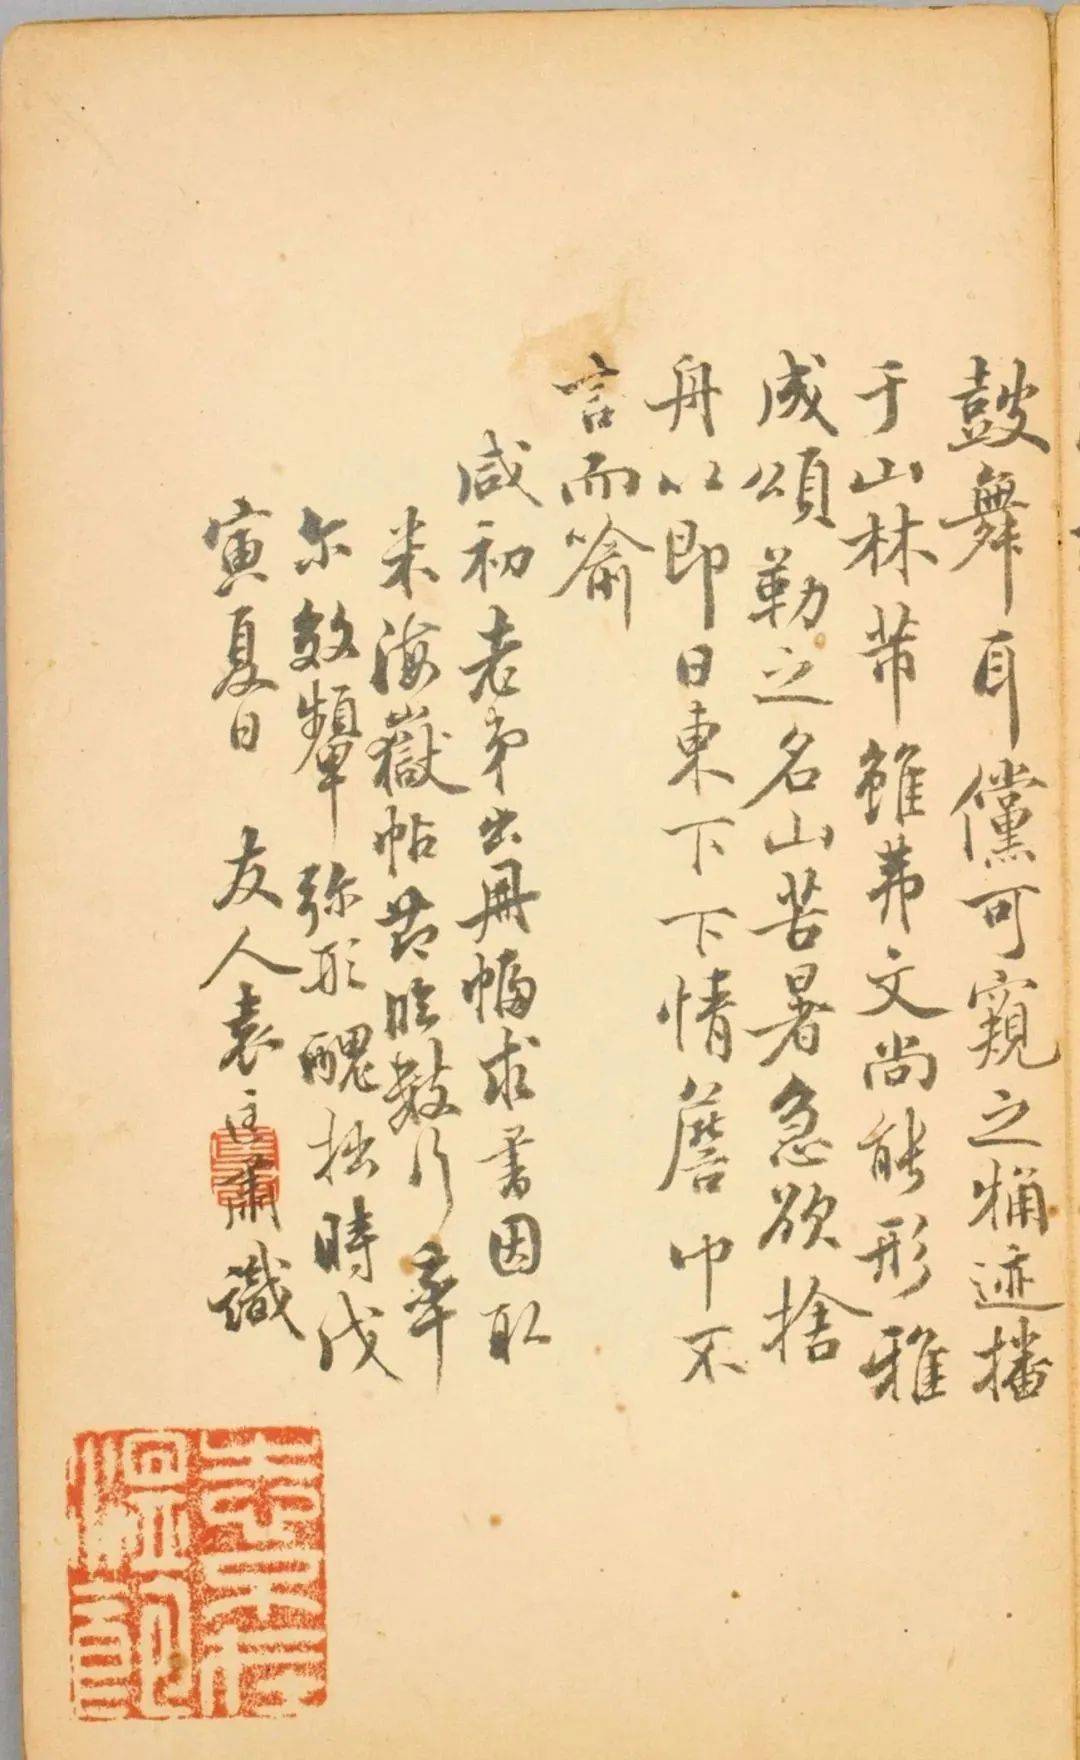 鼓舞耳儻可窺之稱迹播
于山林芾雖苐文尚能形雅
成頌勒之名山苦暑急欲捨
舟以即日東下下情詹巾不
言而喻
咸初老弟出冊幅求書因取
米海嶽帖節臨數行率
尔效顰弥形醜拙時戊
寅夏日 友人袁匡肅識